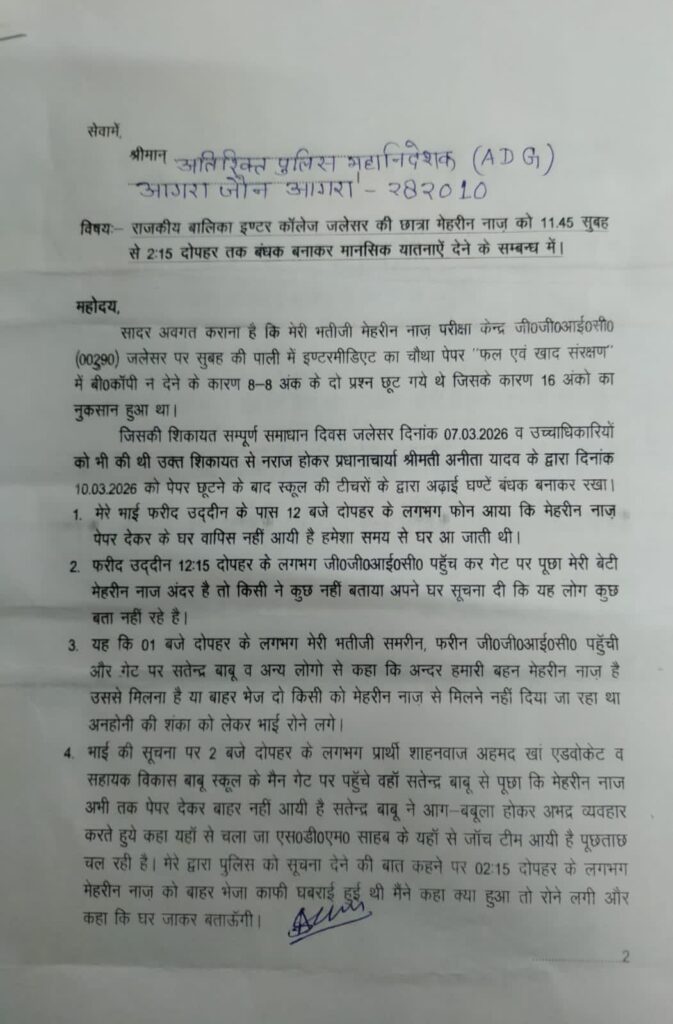 सेवामें,
श्रीमान् अतिरिक्त पुलिस महानिदेशक (ADG)
आगरा जौन आगरा - २82010
विषयः– राजकीय बालिका इण्टर कॉलेज जलेसर की छात्रा मेहरीन नाज़ को 11.45 सुबह
से 2:15 दोपहर तक बंधक बनाकर मानसिक यातनाऐं देने के सम्बन्ध में।
महोदय,
सादर अवगत कराना है कि मेरी भतीजी मेहरीन नाज़ परीक्षा केन्द्र जी0जी0आई0सी0
(00290) जलेसर पर सुबह की पाली में इण्टरमीडिएट का चौथा पेपर "फल एवं खाद संरक्षण"
में बी0कॉपी न देने के कारण 8–8 अंक के दो प्रश्न छूट गये थे जिसके कारण 16 अंको का
नुकसान हुआ था।
जिसकी शिकायत सम्पूर्ण समाधान दिवस जलेसर दिनांक 07.03.2026 व उच्चाधिकारियों
को भी की थी उक्त शिकायत से नराज होकर प्रधानाचार्या श्रीमती अनीता यादव के द्वारा दिनांक
10.03.2026 को पेपर छूटने के बाद स्कूल की टीचरों के द्वारा अढ़ाई घण्टें बंधक बनाकर रखा।
1. मेरे भाई फरीद उद्दीन के पास 12 बजे दोपहर के लगभग फोन आया कि मेहरीन नाज़
पेपर देकर के घर वापिस नहीं आयी है हमेशा समय से घर आ जाती थी।
2. फरीद उद्दीन 12:15 दोपहर के लगभग जी0जी0आई0सी0 पहुँच कर गेट पर पूछा मेरी बेटी
मेहरीन नाज अंदर है तो किसी ने कुछ नहीं बताया अपने घर सूचना दी कि यह लोग कुछ
बता नहीं रहे है।
3. यह कि 01 बजे दोपहर के लगभग मेरी भतीजी समरीन, फरीन जी0जी0आई0सी0 पहुँची
और गेट पर सतेन्द्र बाबू व अन्य लोगो से कहा कि अन्दर हमारी बहन मेहरीन नाज़ है
उससे मिलना है या बाहर भेज दो किसी को मेहरीन नाज़ से मिलने नहीं दिया जा रहा था
अनहोनी की शंका को लेकर भाई रोने लगे।
4. भाई की सूचना पर 2 बजे दोपहर के लगभग प्रार्थी शाहनवाज अहमद खां एडवोकेट व
सहायक विकास बाबू स्कूल के मैन गेट पर पहुँचे वहॉ सतेन्द्र बाबू से पूछा कि मेहरीन नाज
अभी तक पेपर देकर बाहर नहीं आयी है सतेन्द्र बाबू ने आग–बबूला होकर अभद्र व्यवहार
करते हुये कहा यहॉ से चला जा एस0डी0एम0 साहब के यहॉ से जॉच टीम आयी है पूछताछ
चल रही है। मेरे द्वारा पुलिस को सूचना देने की बात कहने पर 02:15 दोपहर के लगभग
मेहरीन नाज़ को बाहर भेजा काफी घबराई हुई थी मैंने कहा क्या हुआ तो रोने लगी और
कहा कि घर जाकर बताऊँगी।
....................2